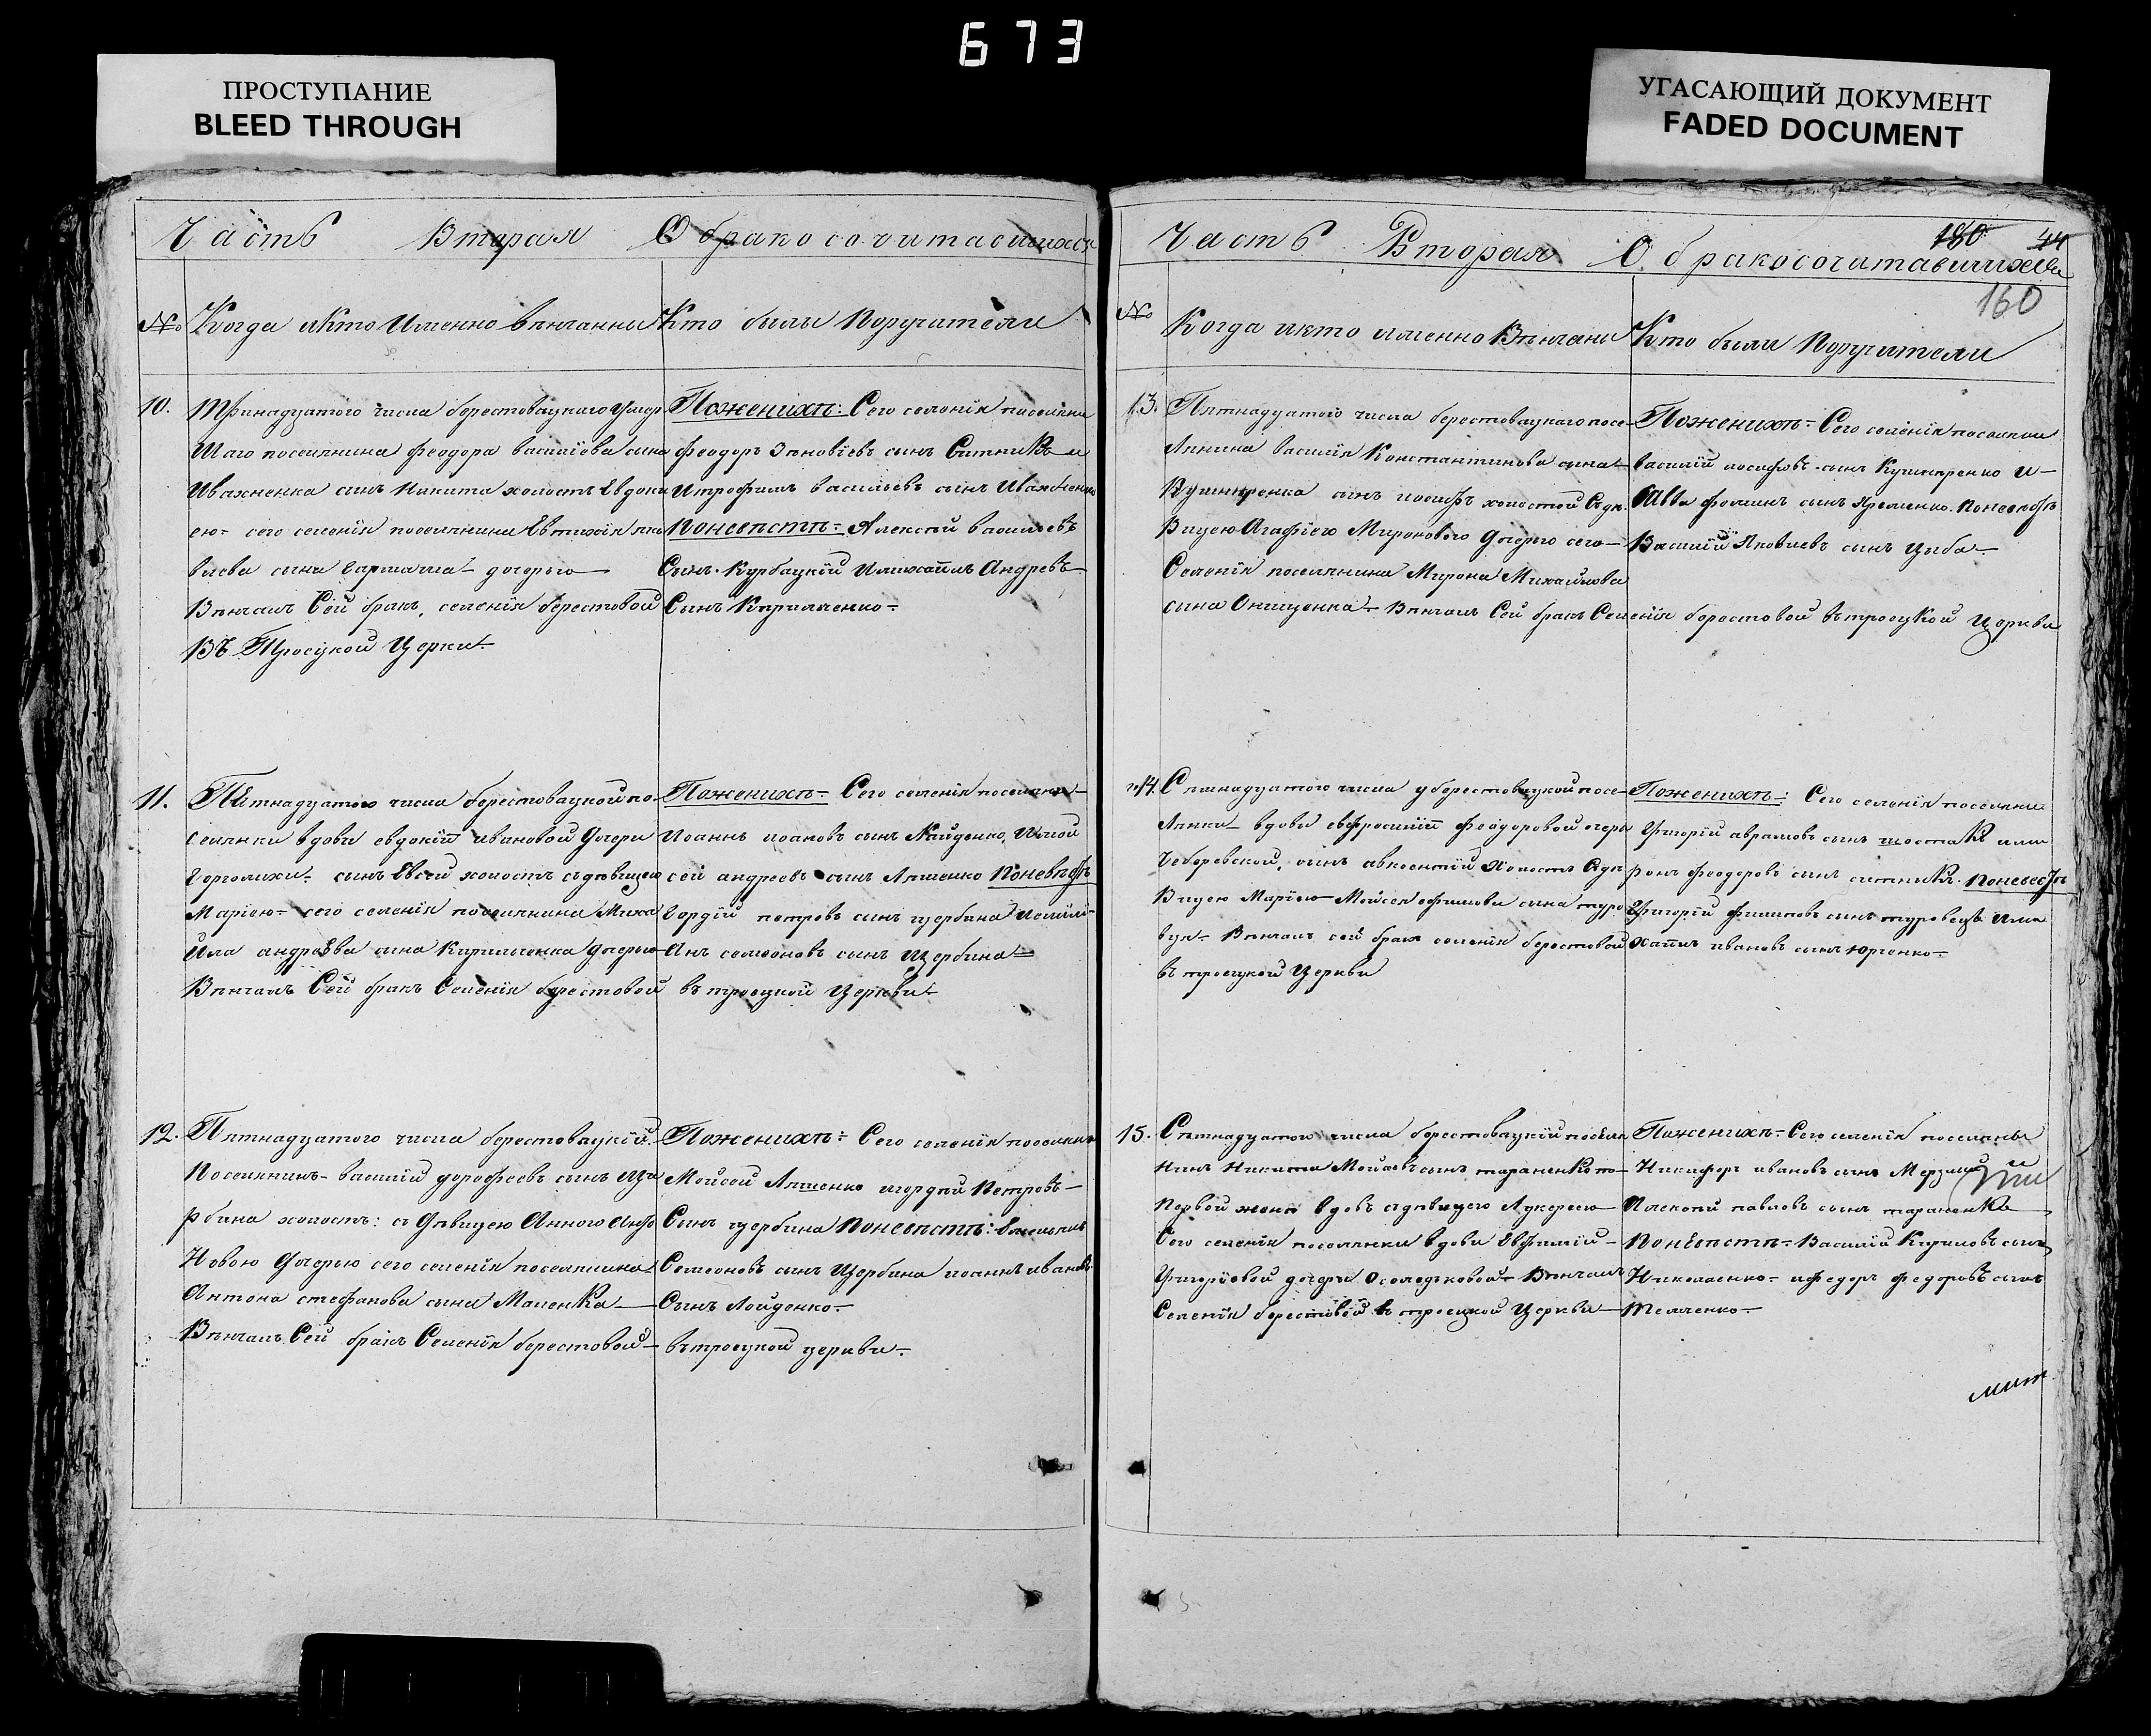 673
ПРОСТУПАНИЕ
BLEED THROUGH
УГАСАЮЩИЙ ДОКУМЕНТ
FADED DOCUMENT
Часть Вторая О бракосочитавшихся
№ Когда и Кто Именно вѣнчанны Кто были Поручители
10. Тринадцатого числа берестовацкаго умер
шаго поселянина феодора василіова сына
Ивахненка сынъ Никита холостъ Евдоки
ею сего селенія поселянина Евтихія яко
влева сына дочерью
Вѣнчалъ Сей бракъ, селенія берестовой
ВЪ Троецкой Церкви
Поженихѣ: Сего селенія поселяне
феодоръ Зѣновіевъ сынъ Ситникъ и
Итрофимъ васильевъ сынъ Ивахненко
Поневѣстѣ Алексѣй васильевъ
Сынъ Курбацкій Имихаилъ Андреевъ
Сынъ Кириленко
11. Пѣтнадцатого числа берестовацкой по
селянки вдовы евдокіи ивановой дочери
сынъ Евсей холостъ съдѣвицею
Маріею сего селенія поселянина Миха
йла андреЕва сына Кириленка дочерью
Вѣнчалъ Сей бракъ Селенія берестовой въ троецкой Церкви
Поженихѣ Сего селенія поселяне
Иоаннъ иоановъ сынъ Найденко, Имой
сей андреевъ сынъ Ляшенко Поневѣстѣ
гордій петровъ сынъ щербина
семеоновъ сынъ Щербина
12. Пятнадцатого числа берестовацкій
Поселянинъ василій дорофеевъ сынъ Ще
рбина холостъ: съ дѣвицею Анною Анто
Новою дочерью сего селенія поселянина
Антона стефанова сына Маленка
Вѣнчалъ Сей бракъ Селенія берестовой въ троецкой церкви
Поженихѣ: Сего селенія поселяне
Мойсей Ляшенко игордѣй Петровъ
Сынъ щербина Поневѣстѣ:
Семеоновъ сынъ Щербина иоаннъ ивановъ
Сынъ Лойденко
Часть Вторая О бракосочитавшихся
180 44
160
№ Когда икто именно Вѣнчаны Кто были Поручители
13. Пятнадцатого числа берестовацкаго посе
лянина василія Константинова сына
Кушниренка сынъ иосифъ холостой Съдѣ
вицею Агафіею Мироновою дочерью сего
Селенія поселянина Мирона Михайлова
сына Онищенка Вѣнчалъ Сей бракъ Селенія берестовой въ троецкой Церкви
Поженихѣ Сего селенія поселяне
василій иосифовъ сынъ Кушниренко и
Савва фоминъ сынъ Яременко. Поневѣстѣ
Василій Яковлевъ сынъ Цыба
14. Сѣмнадцатого числа уберестовацкой посе
лянки вдовы евфросиніи феодоровой дочери
сынъ авксентій холостъ Съдѣ
вицею Маріею Мойсея ефимова сына туро
Вѣнчалъ сей бракъ селенія берестовой
въ троецкой Церкви
Поженихѣ: Сего селенія поселяне
Григорій аврамовъ сынъ шостакъ или
ронъ феодоровъ сынъ ситникъ. Поневестѣ
Григорій филиповъ сынъ туровецъ Ими
хаилъ ивановъ сынъ юрченко
15. Сѣмнадцатого числа берестовацкій поселя
нинъ Никита Мойсеевъ сынъ тараненко по
Первой женѣ вдовъ съдѣвицею Лукерею
Сего селенія поселянки вдовы Евфиміи
Григоріевой дочери Вѣнчалъ
Селенія берестовой въ троецкой Церкви
Поженихѣ Сего селенія поселяны
Никифоръ ивановъ сынъ
Иалексѣй павловъ сынъ тараненко
Поневѣстѣ Василій Кириловъ сынъ
Николаенко ифедоръ федоровъ сынъ